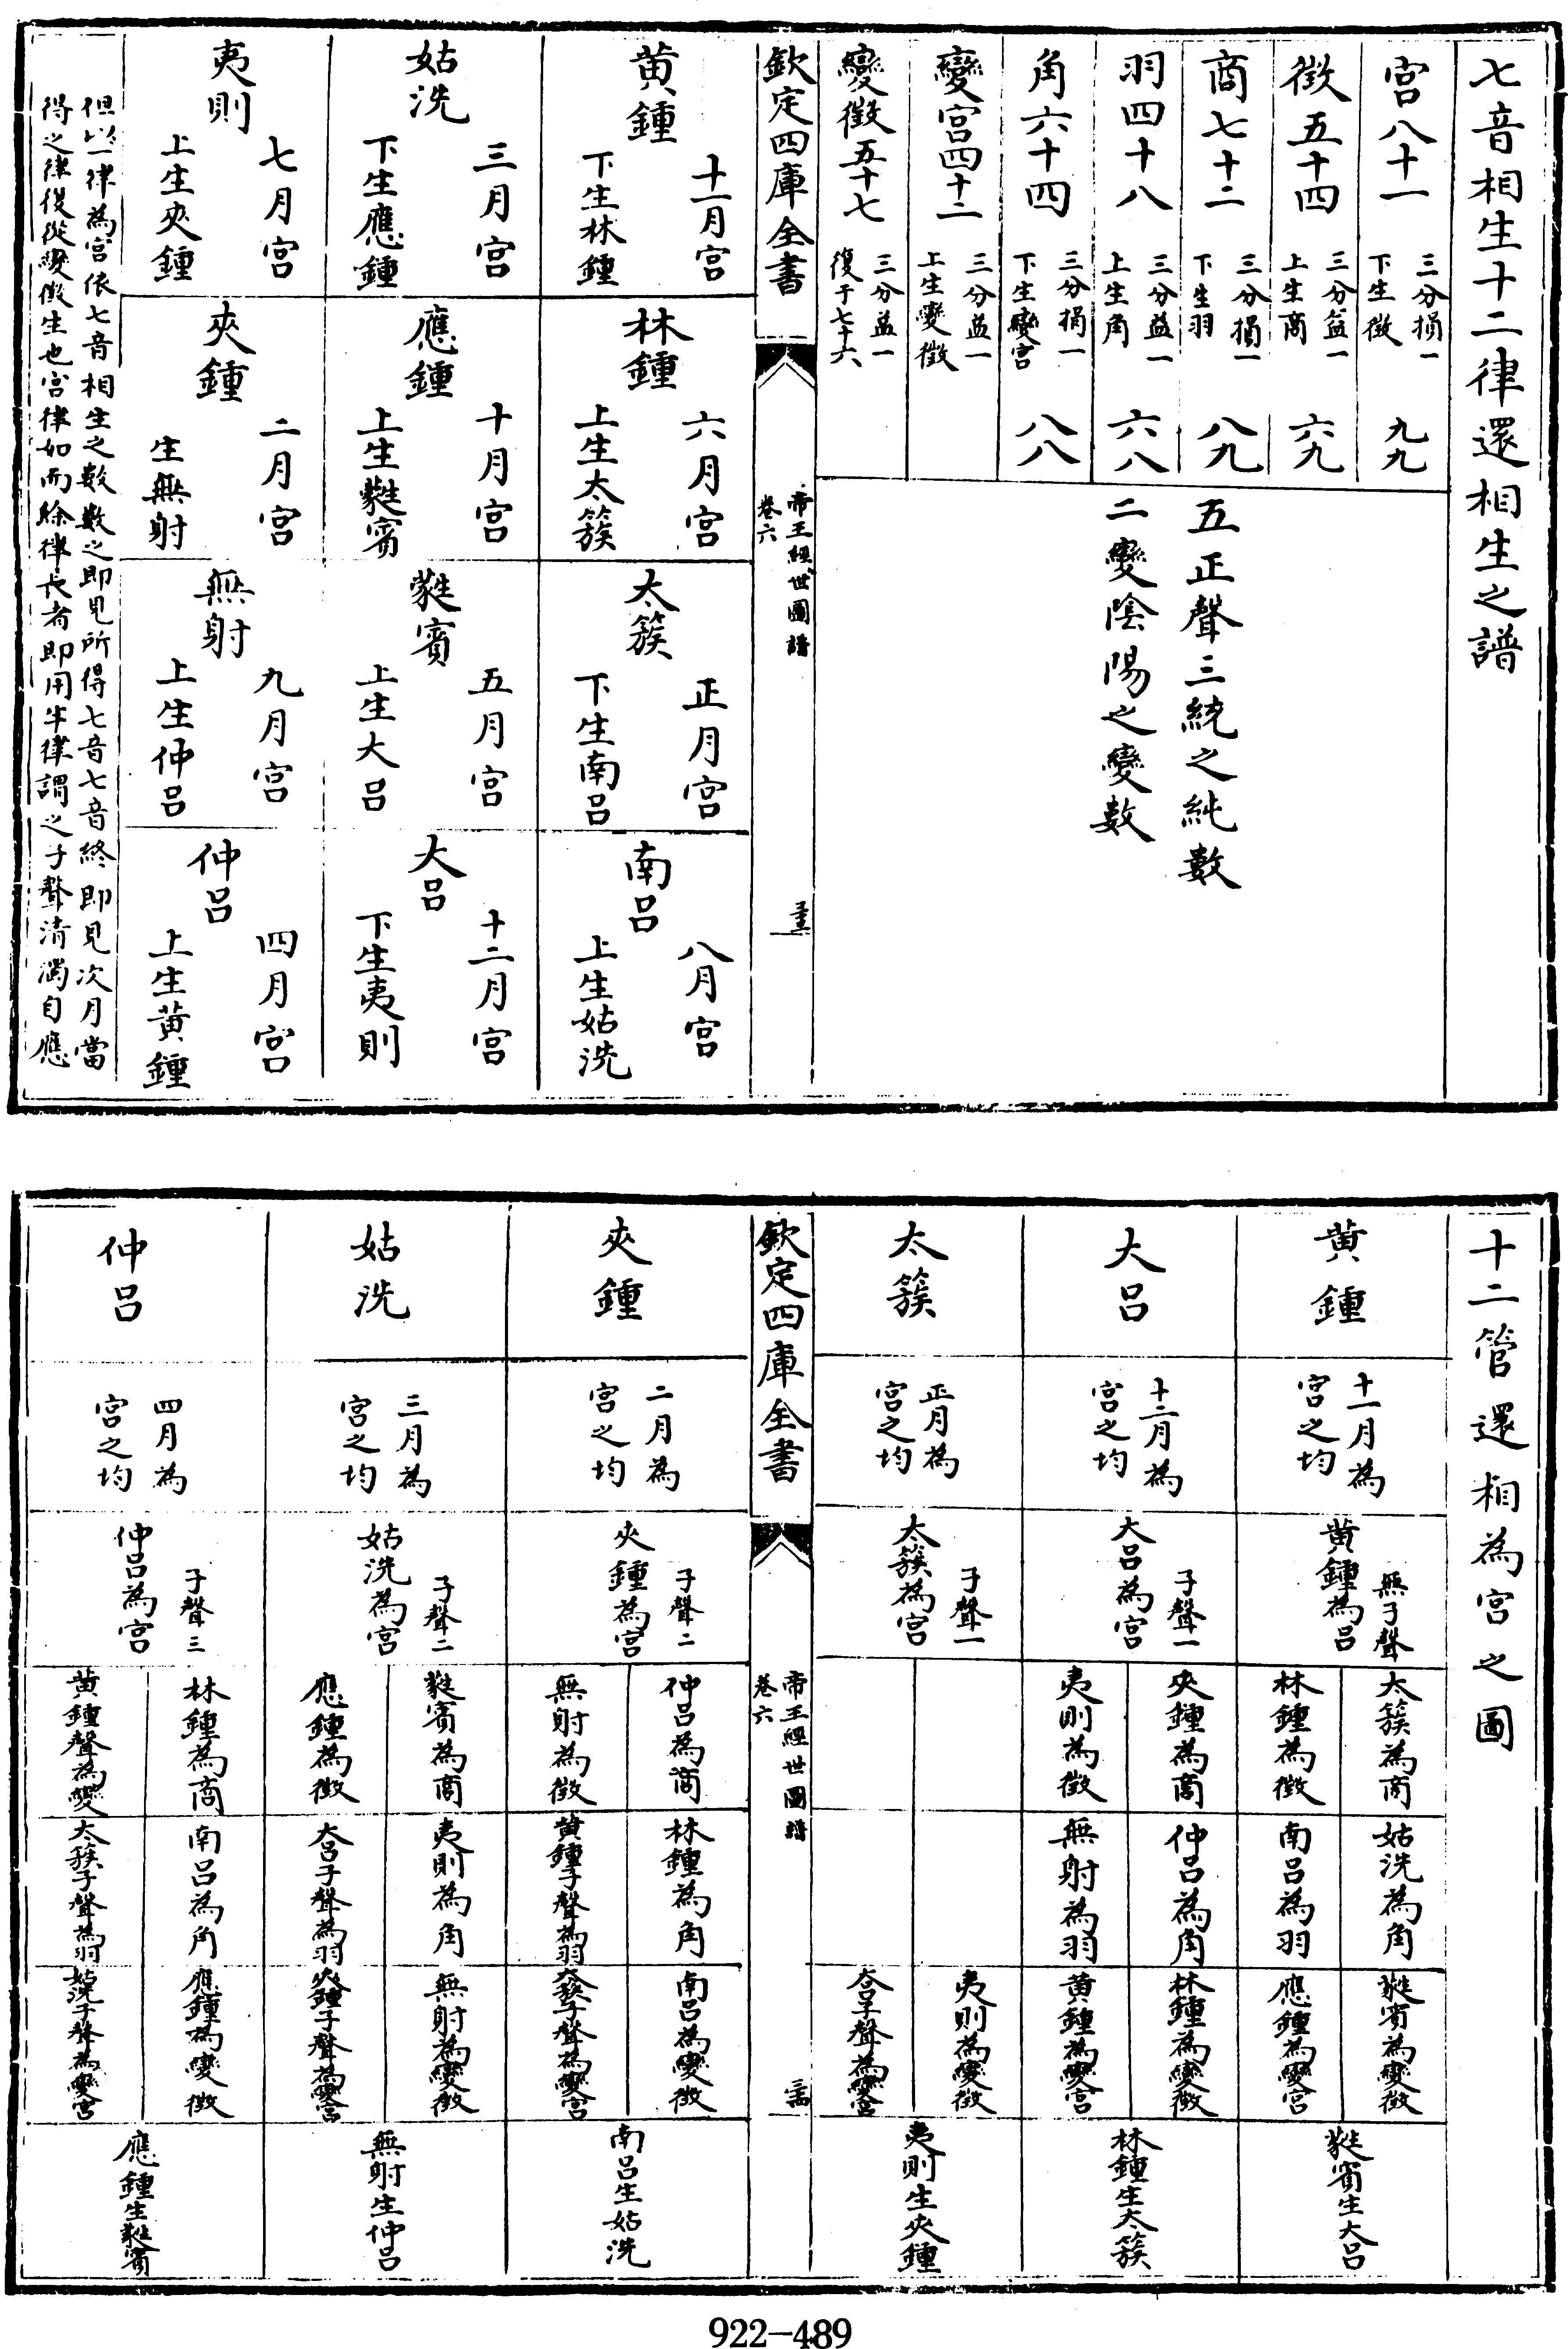 七音相生十二律還相生之譜
宮八十一 三分損一下生徵 九九
徴五十四 三分益一上生商 六九
商七十二 三分損一下生羽 八九
羽四十八 三分益一上生角 六八
角六十四 三分損一下生變宮 八八
變宮四十二 三分益一上生變徴
變徴五十七 三分益一復于七十六
五正聲三統之純數
二變陰陽之變數
欽定四庫全書
帝王經世圖譜
卷六
黄鍾 十一月宮 下生林鍾
林鍾 六月宮 上生太簇
太簇 正月宮 下生南呂
南呂 八月宮 上生姑洗
姑洗 三月宮 下生應鍾
應鍾 十月宮 上生蕤賓
蕤賓 五月宮 上生大呂
大呂 十二月宮 下生夷則
夷則 七月宮 上生夾鍾
夾鍾 二月宮 生無射
無射 九月宮 上生仲呂
仲呂 四月宮 上生黄鍾
但以一律為宮依七音相生之數數之即見所得七音七音終即見次月當
得之律復從變徴生也宮律如而餘律長者即用半律謂之子聲清濁自應
十二管還相為宮之圖
黄鍾
十一月為宮之均
黄鍾為呂 無子聲
太簇為商
林鍾為徴
姑洗為角
南呂為羽
蕤賓為變徴
應鍾為變宮
蕤賓生大呂
大呂
十二月為宮之均
大呂為宮 子聲一
夾鍾為商
夷則為徴
仲呂為角
無射為羽
林鍾為變徴
黄鍾為變宮
林鍾生太簇
太簇
正月為宮之均
太簇為宮 子聲一
夷則為變徴
大呂子聲為變宮
夷則生夾鍾
欽定四庫全書
帝王經世圖譜
卷六
夾鍾
二月為宮之均
夾鍾為宮 子聲二
仲呂為商
無射為徴
林鍾為角
黄鍾子聲為羽
南呂為變徴
太簇子聲為變宮
南呂生姑洗
姑洗
三月為宮之均
姑洗為宮 子聲二
蕤賓為商
應鍾為徴
夷則為角
大呂子聲為羽
無射為變徴
夾鍾子聲為變宮
無射生仲呂
仲呂
四月為宮之均
仲呂為宮 子聲三
林鍾為商
黄鍾聲為變
南呂為角
太簇子聲為羽
應鍾為變徴
姑洗子聲為變宮
應鍾生蕤賓
922-489